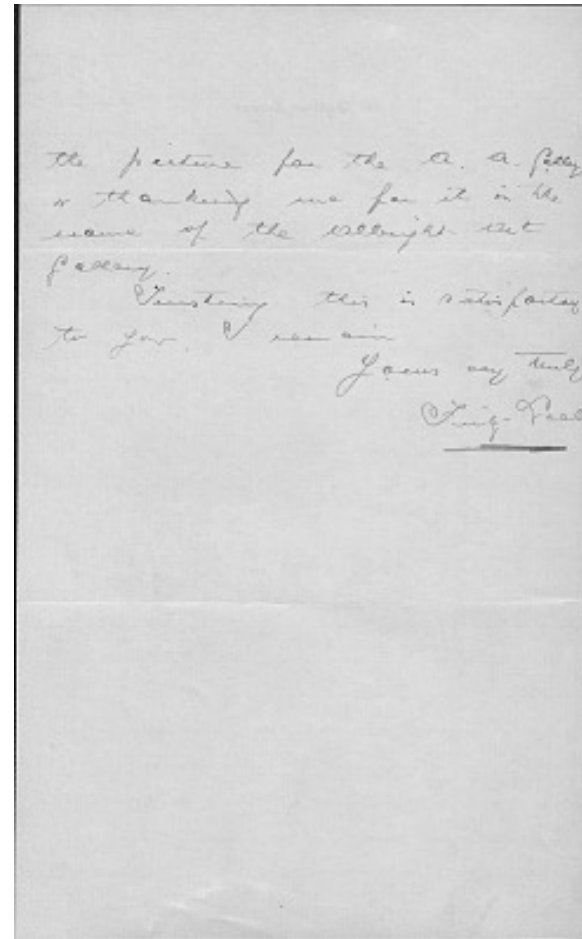 the picture for the A. A. Gallery
or thanking me for it in the
name of the Albright Art
Gallery.
Trusting this is satisfactory
to you, I remain
Yours very truly